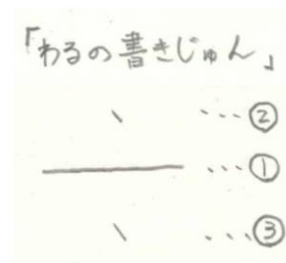 「わるの書きじゅん」
、 ・・・②
― ・・・①
、 ・・・③